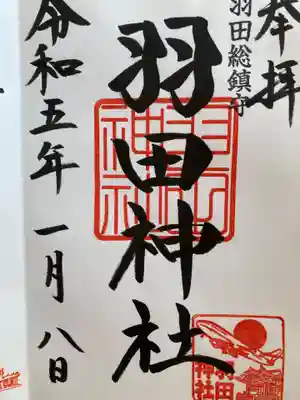 奉拝
羽田総鎮守
羽田神社
令和五年一月八日
羽田神社
羽田
神社